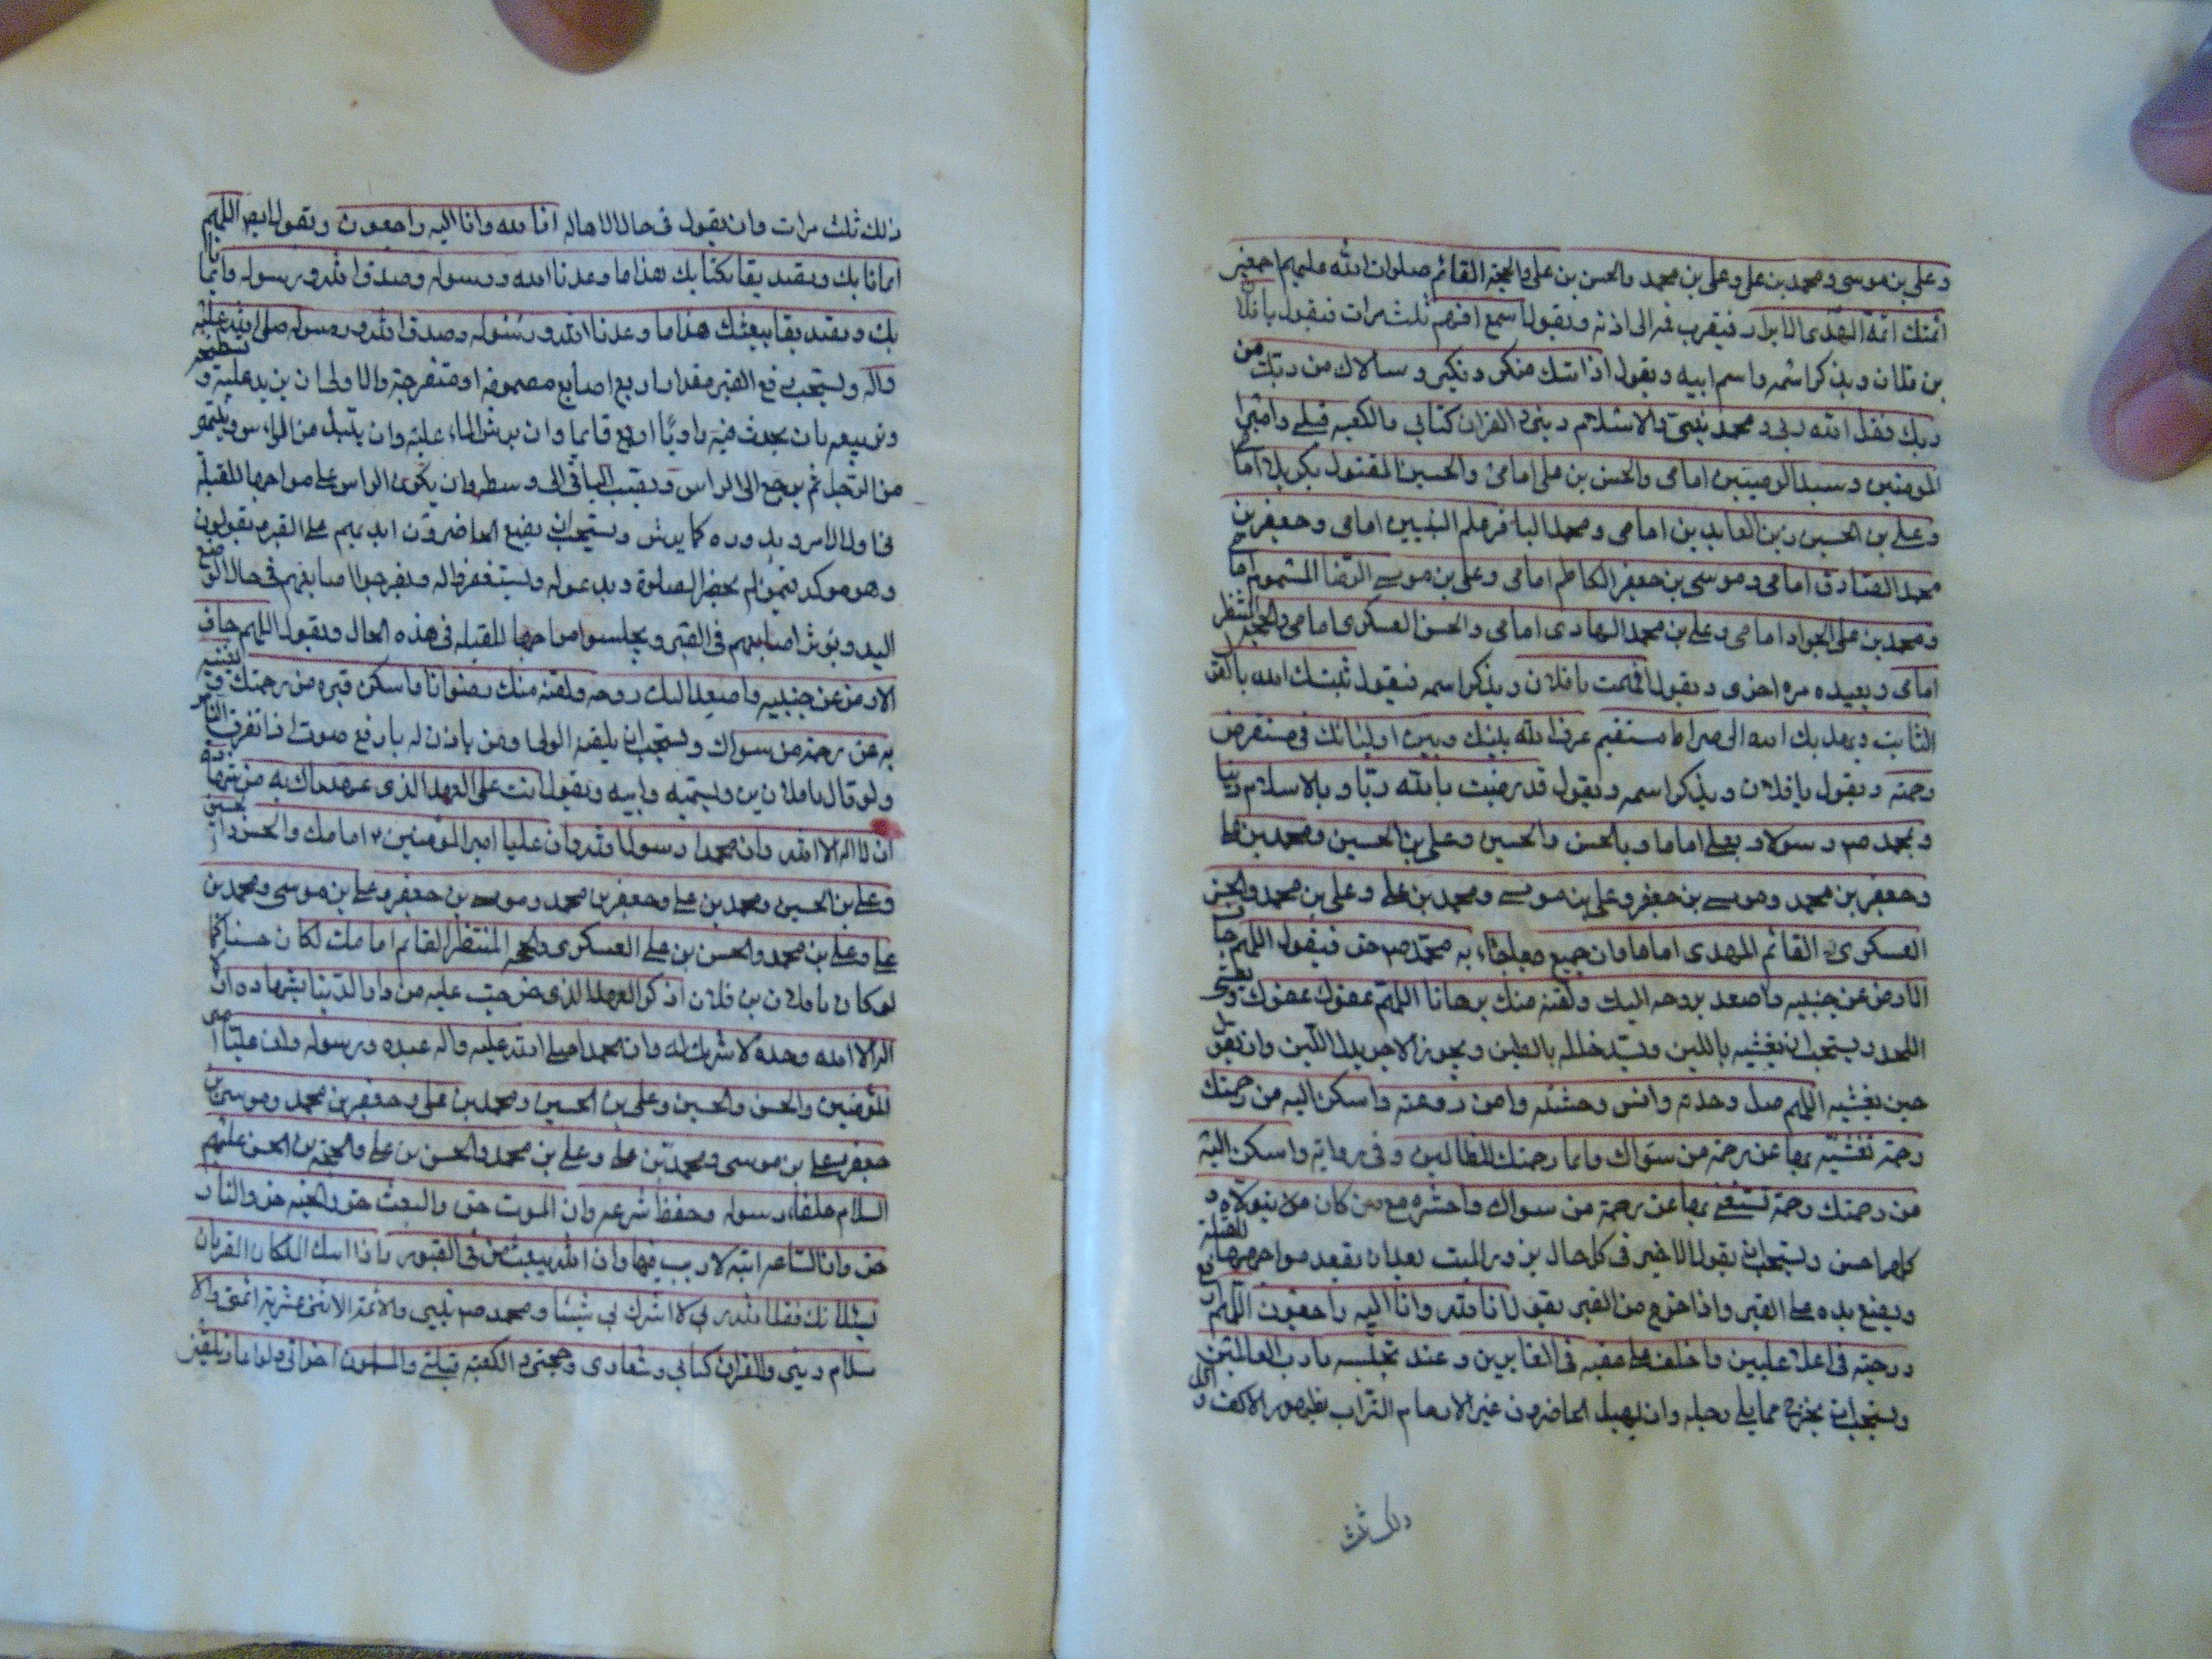 وعلي بن موسى ومحمد بن علي وعلي بن محمد والحسن بن علي والحجة القائم صلوات الله عليهم اجمعين
ائمتك ائمة الهدى الابرار فيقرب فمه الى اذنه ويقول اسمع افهم ثلث مرات فيقول يا فلان
بن فلان ويذكر اسمه واسم ابيه ويقول اذا اتتك منكر ونكير وسالاك من ربك من
ربك فقل الله ربي ومحمد نبيي والاسلام ديني والقران كتابي والكعبه قبلتي وامير
المومنين وسيد الوصيين امامي والحسن بن علي امامي والحسين المقتول بكربلا امامي
وعلي بن الحسين زين العابدين امامي ومحمد الباقر علم النبيين امامي وجعفر بن
محمد الصادق امامي وموسى بن جعفر الكاظم امامي وعلي بن موسى الرضا المسموم امامي
ومحمد بن علي الجواد امامي وعلي بن محمد الهادي امامي والحسن العسكري امامي والحجة المنتظر
امامي ويعيده مره اخرى ويقول افهمت يا فلان ويذكر اسمه فيقول ثبتك الله بالقول
الثابت ويهديك الله الى صراط مستقيم عرف الله بينك وبين اوليائك في مستقر من
رحمته ويقول يا فلان ويذكر اسمه ويقول قد رضيت بالله ربا وبالاسلام دينا
وبمحمد ص رسولا وبعلي اماما وبالحسن والحسين وعلي بن الحسين ومحمد بن علي
وجعفر بن محمد وموسى بن جعفر وعلي بن موسى ومحمد بن علي وعلي بن محمد والحسن
العسكري و القائم المهدي اماما وان جميع ما جاء به محمد ص حق فيقول اللهم جاف
الارض عن جنبيه واصعد بروحه اليك ولقنه منك برهانا اللهم عفوك عفوك
اللحد ويستحب ان يغشيه باللبن ويسد خلله بالطين ويجوز الاجر بدل اللبن وان يقول
حين يغشيه اللهم صل وحدته وانس وحشته وامن روعته واسكن اليه من رحمتك
رحمة تغنيه بها عن رحمة من سواك فانما رحمتك للظالمين وفي رواية واسكن اليه
من رحمتك رحمة تستغني بها عن رحمة من سواك واحشره مع من كان يتولاه و
كلها حسن ويستحب ان يقول الاخير في كل حال يزور الميت بعد ان يقعد مواجها للقبلة
ويضع يده على القبر واذا خرج من القبر يقول انا لله وانا اليه راجعون اللهم ارفع
درجته في اعلا عليين واخلف على عقبه في الغابرين وعند نحتسبه يا رب العالمين
ويستحب ان يخرج مما يلي رجليه وان يهيل الحاضرون غير الارحام التراب بظهور الاكف و
ذلك ثلث
ذلك ثلث مرات وان يقول في حال الاهاله انا لله وانا اليه راجعون ويقول ايض اللهم
ايمانا بك وتصديقا بكتابك هذا ما وعدنا الله ورسوله وصدق الله ورسوله وايمانا
بك وتصديقا ببعثك هذا ما وعدنا الله ورسوله وصدق الله ورسوله صلى الله عليه
واله ويستحب رفع القبر مقدار اربع اصابع مضمومة او منفرجة والاولى ان يزيد عليه و تسطيحه
وتربيعه بان يحدث فيه زاويا اربع قايما وان يرش الماء عليه وان يبتدئ من الراس
من الرجل ثم يرجع الى الراس ويصب الباقي الى وسطه وان يكون الراس على مواجها للقبلة
في اول الامر ويدوره كما يرش ويستحب ان يضع الحاضرون ايديهم على القبر يقولون
وهو موكد فيمن لم يحضر الصلوة ويدعو له ويستغفر له ويفرجوا اصابعهم في حال الوضع
اليد وتوثر اصابعهم في القبر ويجلسوا مواجها للقبله في هذه الحال ويقول اللهم جاف
الارض عن جنبيه واصعد اليك روحه ولقنه منك رضوانا واسكن قبره من رحمتك ما تغنيه
به عن رحمة من سواك ويستحب ان يلقنه الولي او من ياذن له بارفع صوت اذا تفرق الناس
ولو قال يا فلان بن ويسميه وابيه ويقول انت على العهد الذي عهدناك به من شهادة
ان لا اله الا الله وان محمدا رسول الله وان عليا امير المؤمنين ع امامك والحسن والحسين
وعلي بن الحسين ومحمد بن علي وجعفر بن محمد وموسى بن جعفر وعلي بن موسى ومحمد بن
علي وعلي بن محمد والحسن بن علي العسكري والحجه المنتظر القائم امامك لكان حسنا كما
لو كان يا فلان بن فلان اذكر العهد الذي خرجت عليه من دار الدنيا شهادة ان
اله الا الله وحده لا شريك له وان محمدا صلى الله عليه واله عبده ورسوله وان عليا امير
المؤمنين والحسن والحسين وعلي بن الحسين ومحمد بن علي وجعفر بن محمد وموسى بن
جعفر وعلي بن موسى ومحمد بن علي وعلي بن محمد والحسن بن علي والحجة بن الحسن عليهم
السلام خلفاء رسوله وحفظة شرعه وان الموت حق والبعث حق والجنه حق والنار
حق وان الساعه اتية لا ريب فيها وان الله يبعث من في القبور فاذا اتاك الملكان القربان
يسئلانك فقل الله ربي لا اشرك بي شيئا ومحمد ص نبيي والائمة الاثنى عشرية ائمتي والا
سلام ديني والقران كتابي وشعاري وحجتي والكعبة قبلتي والمسلمون اخواني